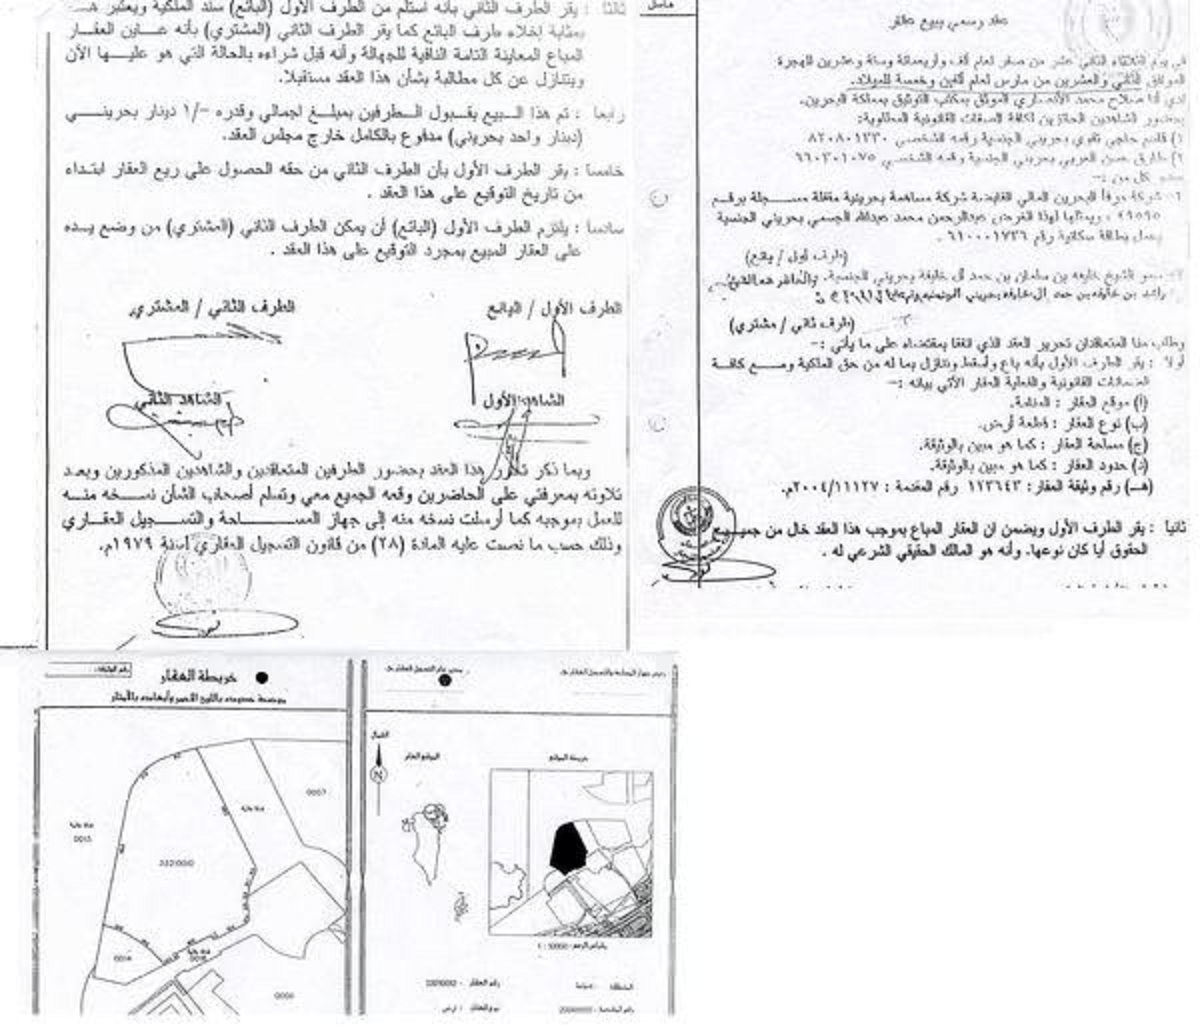 عقد رسمي ببيع عقار
في يوم الثلاثاء الثاني عشر من صفر لعام ألف وأربعمائة وستة وعشرين للهجرة
الموافق الثاني والعشرين من مارس لعام ألفين وخمسة للميلاد.
لدي أنا صلاح محمد الأنصاري الموثق بمكتب التوثيق بمملكة البحرين.
بحضور الشاهدين الحائزين لكافة الصفات القانونية المطلوبة:
١) قاسم حاجي تقوي بحريني الجنسية رقمه الشخصي ٨٢٠٨٠١٣٣٠
٢) طارق حسن العربي بحريني الجنسية رقمه الشخصي ٦٦٠٣٠١٠٧٥
حضر كل من :-
١- شركة مرفأ البحرين المالي القابضة شركة مساهمة بحرينية مقفلة مسجلة برقم
ويمثلها لهذا الغرض عبدالرحمن محمد عبدالله الجسمي بحريني الجنسية
يحمل بطاقة سكانية رقم ٦١٠٠٠١٧٣٦ .
(طرف أول / بائع)
سمو الشيخ خليفه بن سلمان بن حمد آل خليفة بحريني الجنسية. والحاضر عنه الشيخ
راشد بن خليفه بن حمد آل خليفه بحريني الجنسيه
(طرف ثاني / مشتري)
وطلب منا المتعاقدان تحرير العقد الذي اتفقا بمقتضاه على ما يأتي :-
أولا : يقر الطرف الأول بأنه باع وأسقط وتنازل بما له من حق الملكية ومع كافة
الضمانات القانونية والفعلية العقار الآتي بيانه :-
(أ) موقع العقار : المنامة.
(ب) نوع العقار : قطعة أرض.
(ج) مساحة العقار : كما هو مبين بالوثيقة.
(د) حدود العقار : كما هو مبين بالوثيقة.
(هـ) رقم وثيقة العقار : ١١٣٦٤٣ رقم المقدمة : ٢٠٠٤/١١١٢٧م.
ثانيا : يقر الطرف الأول ويضمن ان العقار المباع بموجب هذا العقد خال من جميع
الحقوق أيا كان نوعها. وأنه هو المالك الحقيقي الشرعي له .
ثالثا : يقر الطرف الثاني بأنه استلم من الطرف الأول (البائع) سند الملكية ويعتبر هـ
بمثابة إخلاء طرف البائع كما يقر الطرف الثاني (المشتري) بأنه عاين العقار
المباع المعاينة التامة النافية للجهالة وأنه قبل شراءه بالحالة التي هو عليها الآن
ويتنازل عن كل مطالبة بشأن هذا العقد مستقبلا.
رابعا : تم هذا البيع بقبول الطرفين بمبلغ اجمالي وقدره -/١ دينار بحريني
(دينار واحد بحريني) مدفوع بالكامل خارج مجلس العقد.
خامسا : يقر الطرف الأول بأن الطرف الثاني من حقه الحصول على ريع العقار ابتداء
من تاريخ التوقيع على هذا العقد .
سادسا : يلتزم الطرف الأول (البائع) أن يمكن الطرف الثاني (المشتري) من وضع يده
على العقار المبيع بمجرد التوقيع على هذا العقد .
الطرف الأول / البائع
الطرف الثاني / المشتري
الشاهد الأول
الشاهد الثاني
وبما ذكر تحرر هذا العقد بحضور الطرفين المتعاقدين والشاهدين المذكورين وبعد
تلاوته بمعرفتي على الحاضرين وقعه الجميع معي وتسلم أصحاب الشأن نسخه منه
للعمل بموجبه كما أرسلت نسخه منه إلى جهاز المساحة والتسجيل العقاري
وذلك حسب ما نصت عليه المادة (٢٨) من قانون التسجيل العقاري لسنة ١٩٧٩م.
خريطة العقار
موضحة حدوده باللون الأحمر وأبعاده بالأمتار
0007
0013
0014
الشمال
N
الموقع العام
خريطة الموقع
مقياس الرسم : 10000 : 1
رقم العقار
المنطقة
نوع العقار : أرض
رقم المقدمة